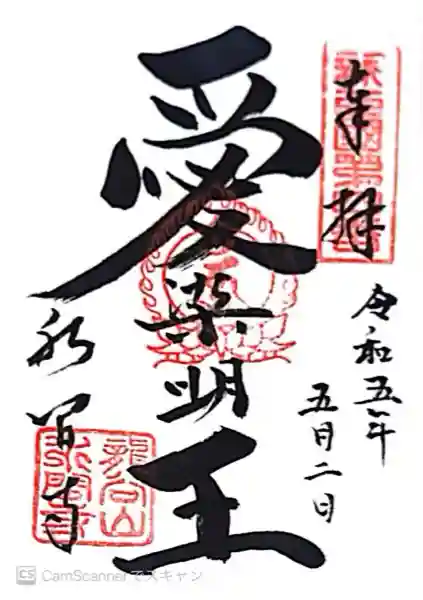 奉拝
令和五年
五月二日
愛染明王
永間寺
CamScannerでスキャン